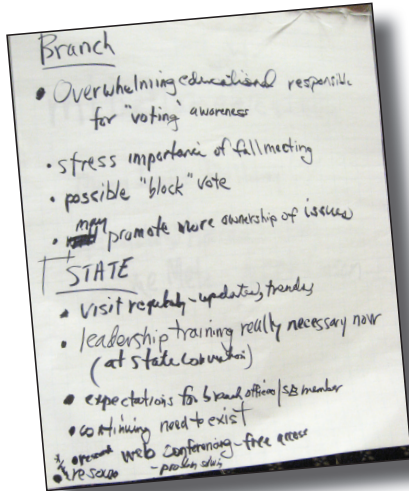 Branch
• Overwhelming educational responsible
for "voting" awareness
• stress importance of fall meeting
• possible "block" vote
• may promote more ownership of issues
STATE
• visit regularly - updates, trends
• leadership training really necessary now
(at State Convention)
• expectations for branch officers / SB member
• continuing need to exist
web conferencing - free access
- problem solving